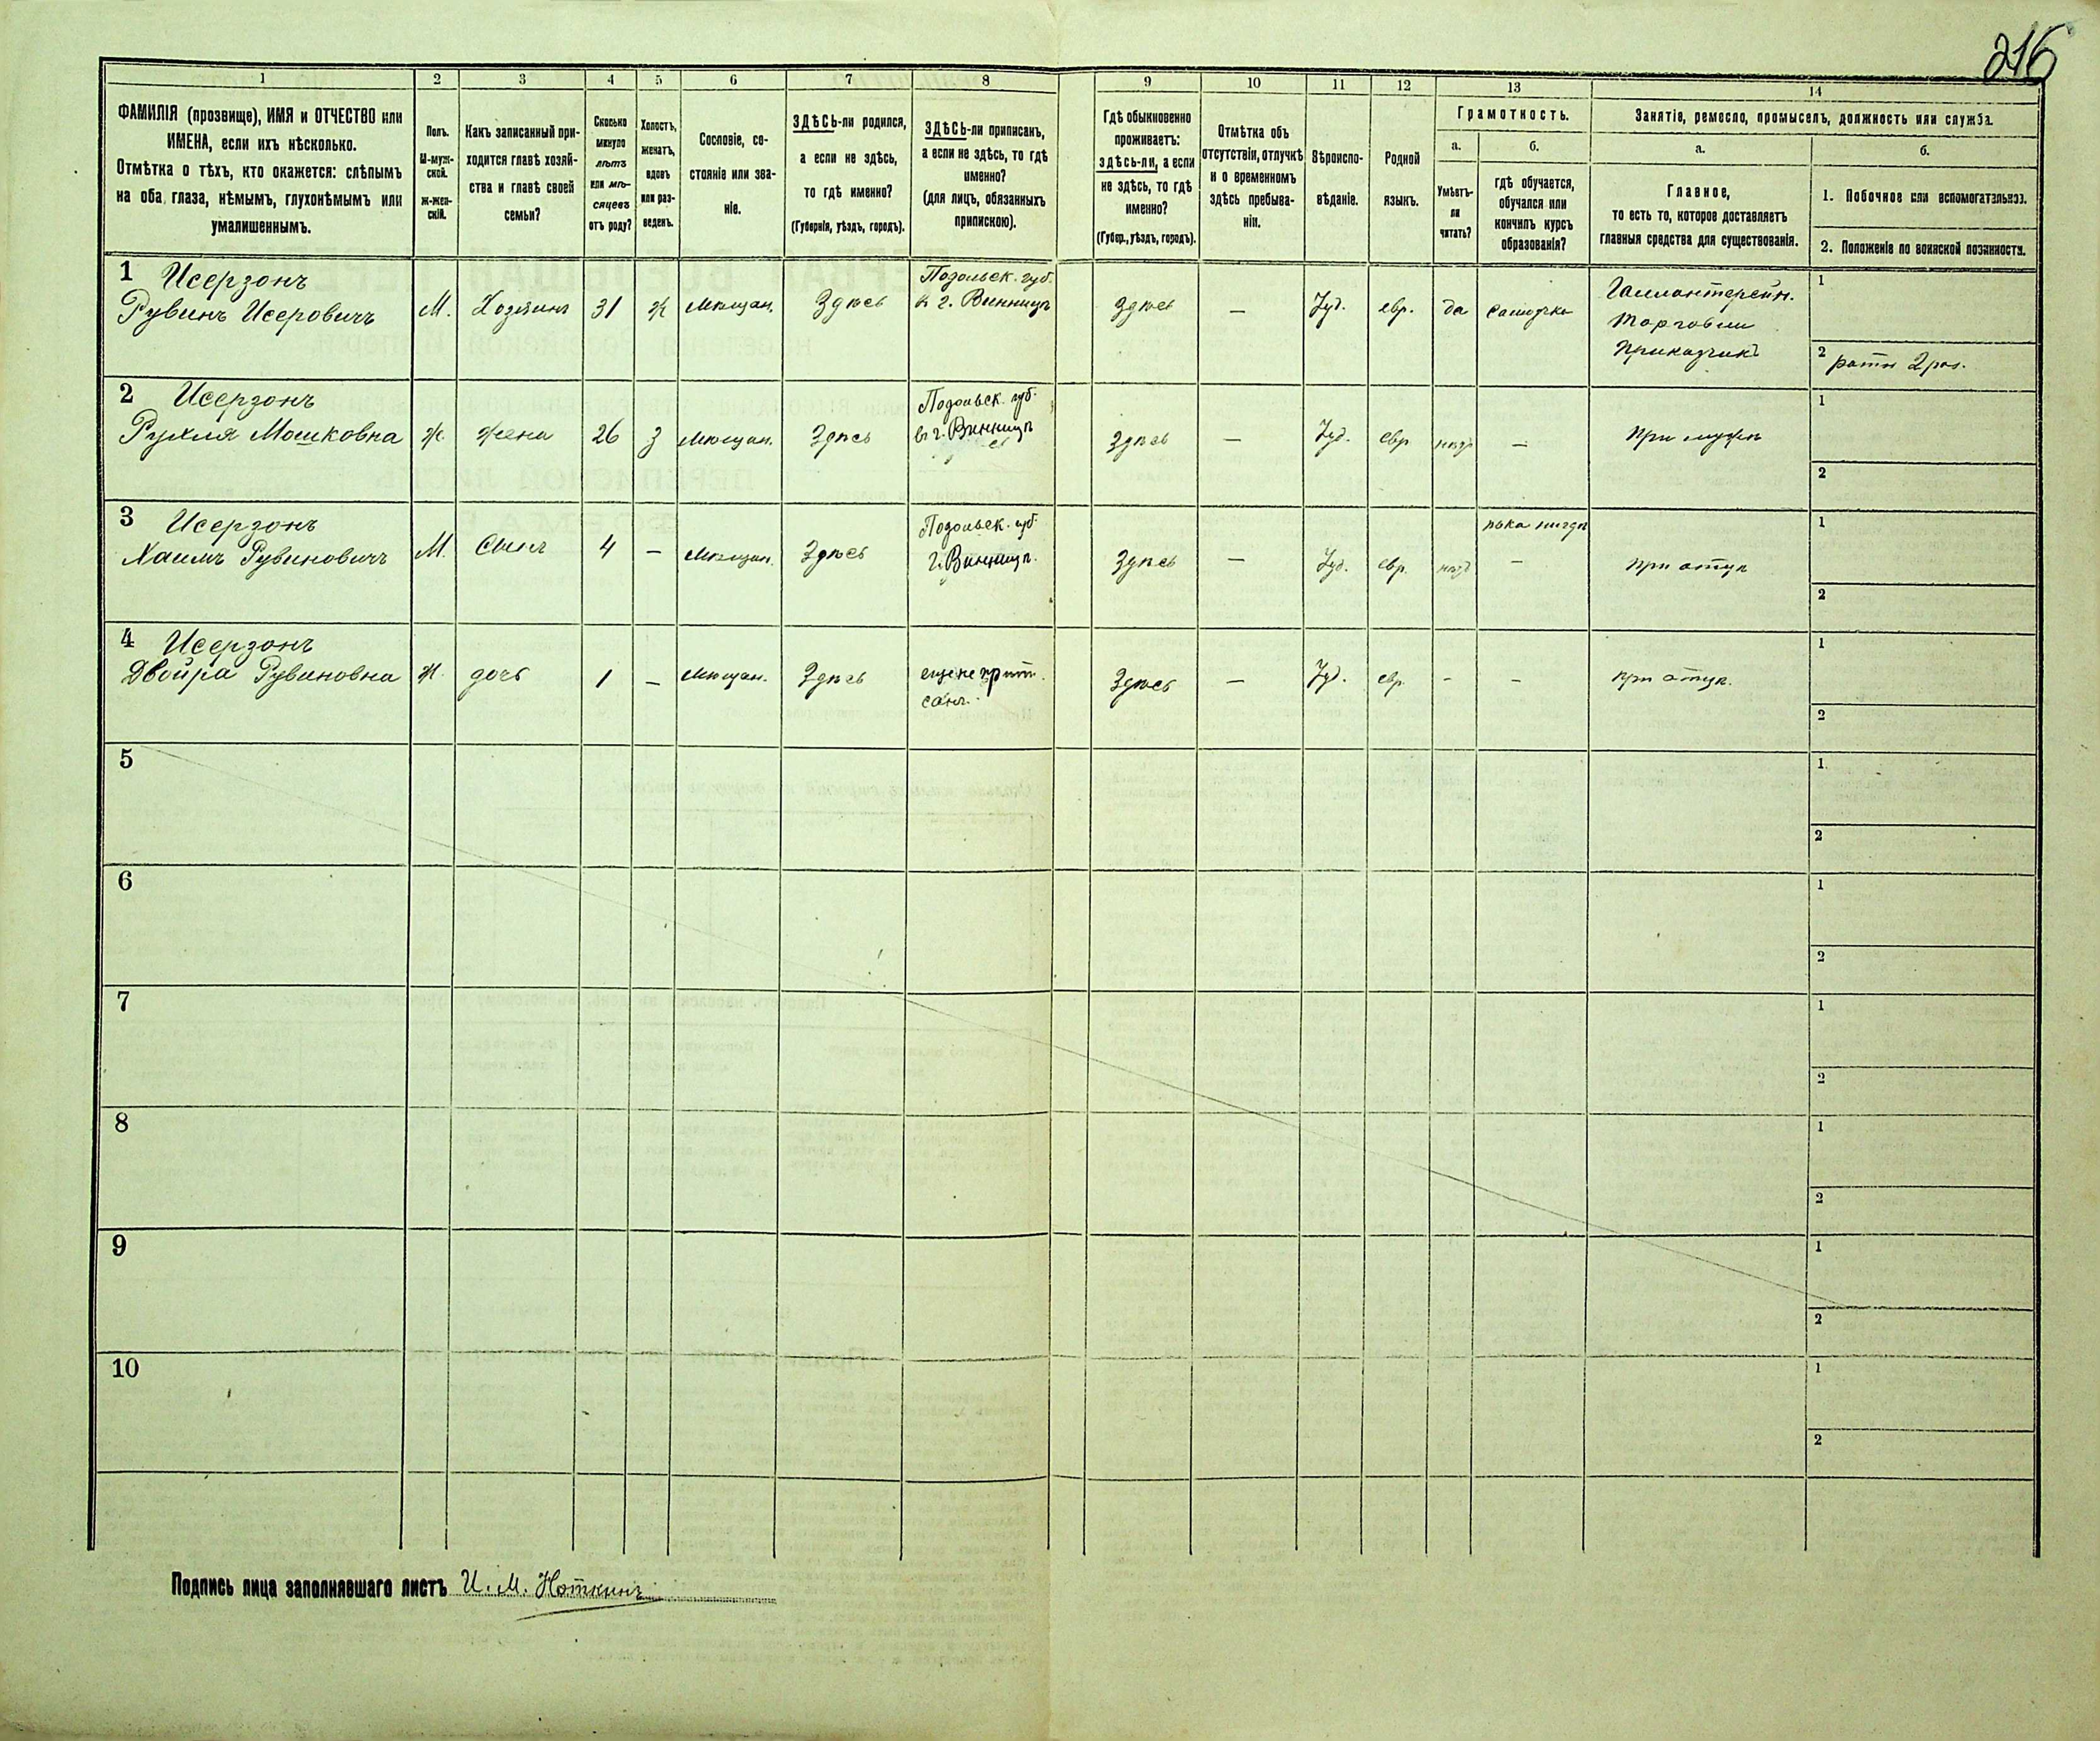 216
1
2
3
4
5
6
7
8
9
10
11
12
13
14
ФАМИЛІЯ (прозвище), ИМЯ и ОТЧЕСТВО или
ИМЕНА, если ихъ нѣсколько.
Отмѣтка о тѣхъ, кто окажется: слѣпымъ
на оба глаза, нѣмымъ, глухонѣмымъ или
умалишеннымъ.
Полъ.
М-муж-
ской.
Ж-жен-
скій.
Какъ записанный при-
ходится главѣ хозяй-
ства и главѣ своей
семьи?
Сколько
минуло
лѣтъ
или мѣ-
сяцевъ
отъ роду?
Холостъ,
женатъ,
вдовъ
или раз-
веденъ.
Сословіе, со-
стояніе или зва-
ніе.
ЗДѢСЬ-ли родился,
а если не здѣсь,
то гдѣ именно?
(Губернія, уѣздъ, городъ).
ЗДѢСЬ-ли приписанъ,
а если не здѣсь, то гдѣ
именно?
(для лицъ, обязанныхъ
припискою).
Гдѣ обыкновенно
проживаетъ:
здѣсь-ли, а если
не здѣсь, то гдѣ
именно?
(Губер., уѣздъ, городъ).
Отмѣтка объ
отсутствіи, отлучкѣ
и о временномъ
здѣсь пребыва-
ніи.
Вѣроиспо-
вѣданіе.
Родной
языкъ.
Грамотность.
а.
Умѣетъ-
ли
читать?
б.
гдѣ обучается,
обучался или
кончилъ курсъ
образованія?
Занятіе, ремесло, промыселъ, должность или служба.
а.
Главное,
то есть то, которое доставляетъ
главныя средства для существованія.
б.
1. Побочное или вспомогательное.
2. Положеніе по воинской повинности.
1 Исерзонъ
Рувинъ Исеровичъ
М.
Хозяинъ
31
ж
мѣщан.
Здѣсь
Подольск. губ.
в г. Винницѣ
Здѣсь
—
Іуд.
евр.
да
самоучка
Галлантерейн.
торговли
приказчикъ
1
2 ратн 2 раз.
2 Исерзонъ
Рухля Мошковна
ж.
жена
26
З
мѣщан.
Здѣсь
Подольск. губ.
въ г. Винницѣ
Здѣсь
—
Іуд.
евр
нѣтъ
—
При мужѣ
1
2
3 Исерзонъ
Хаимъ Рувиновичъ
М.
Сынъ
4
—
мѣщан.
Здѣсь
Подольск. губ.
г. Винницѣ.
Здѣсь
—
Іуд.
евр.
нѣтъ
пока нигдѣ
—
при отцѣ
1
2
4 Исерзонъ
Двойра Рувиновна
ж.
дочь
1
—
мѣщан.
Здѣсь
еще не припи-
сан.
Здѣсь
—
Іуд.
евр.
-
-
при отцѣ.
1
2
5
1
2
6
1
2
7
1
2
8
1
2
9
1
2
10
1
2
Подпись лица заполнявшаго листъ И. М. Ноткинъ